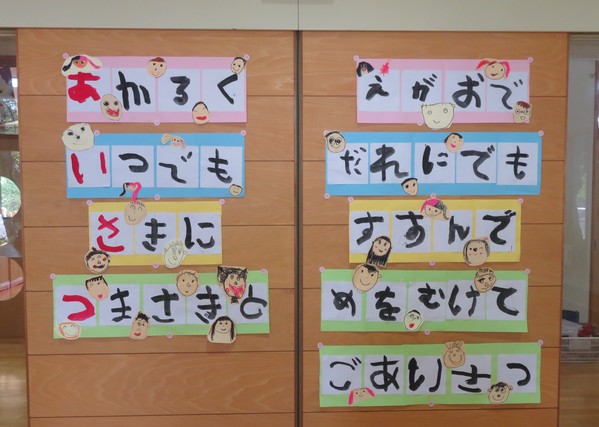 あかるく えがおで
いつでも だれにでも
さきに すすんで
つまさきと めをむけて
ごあいさつ